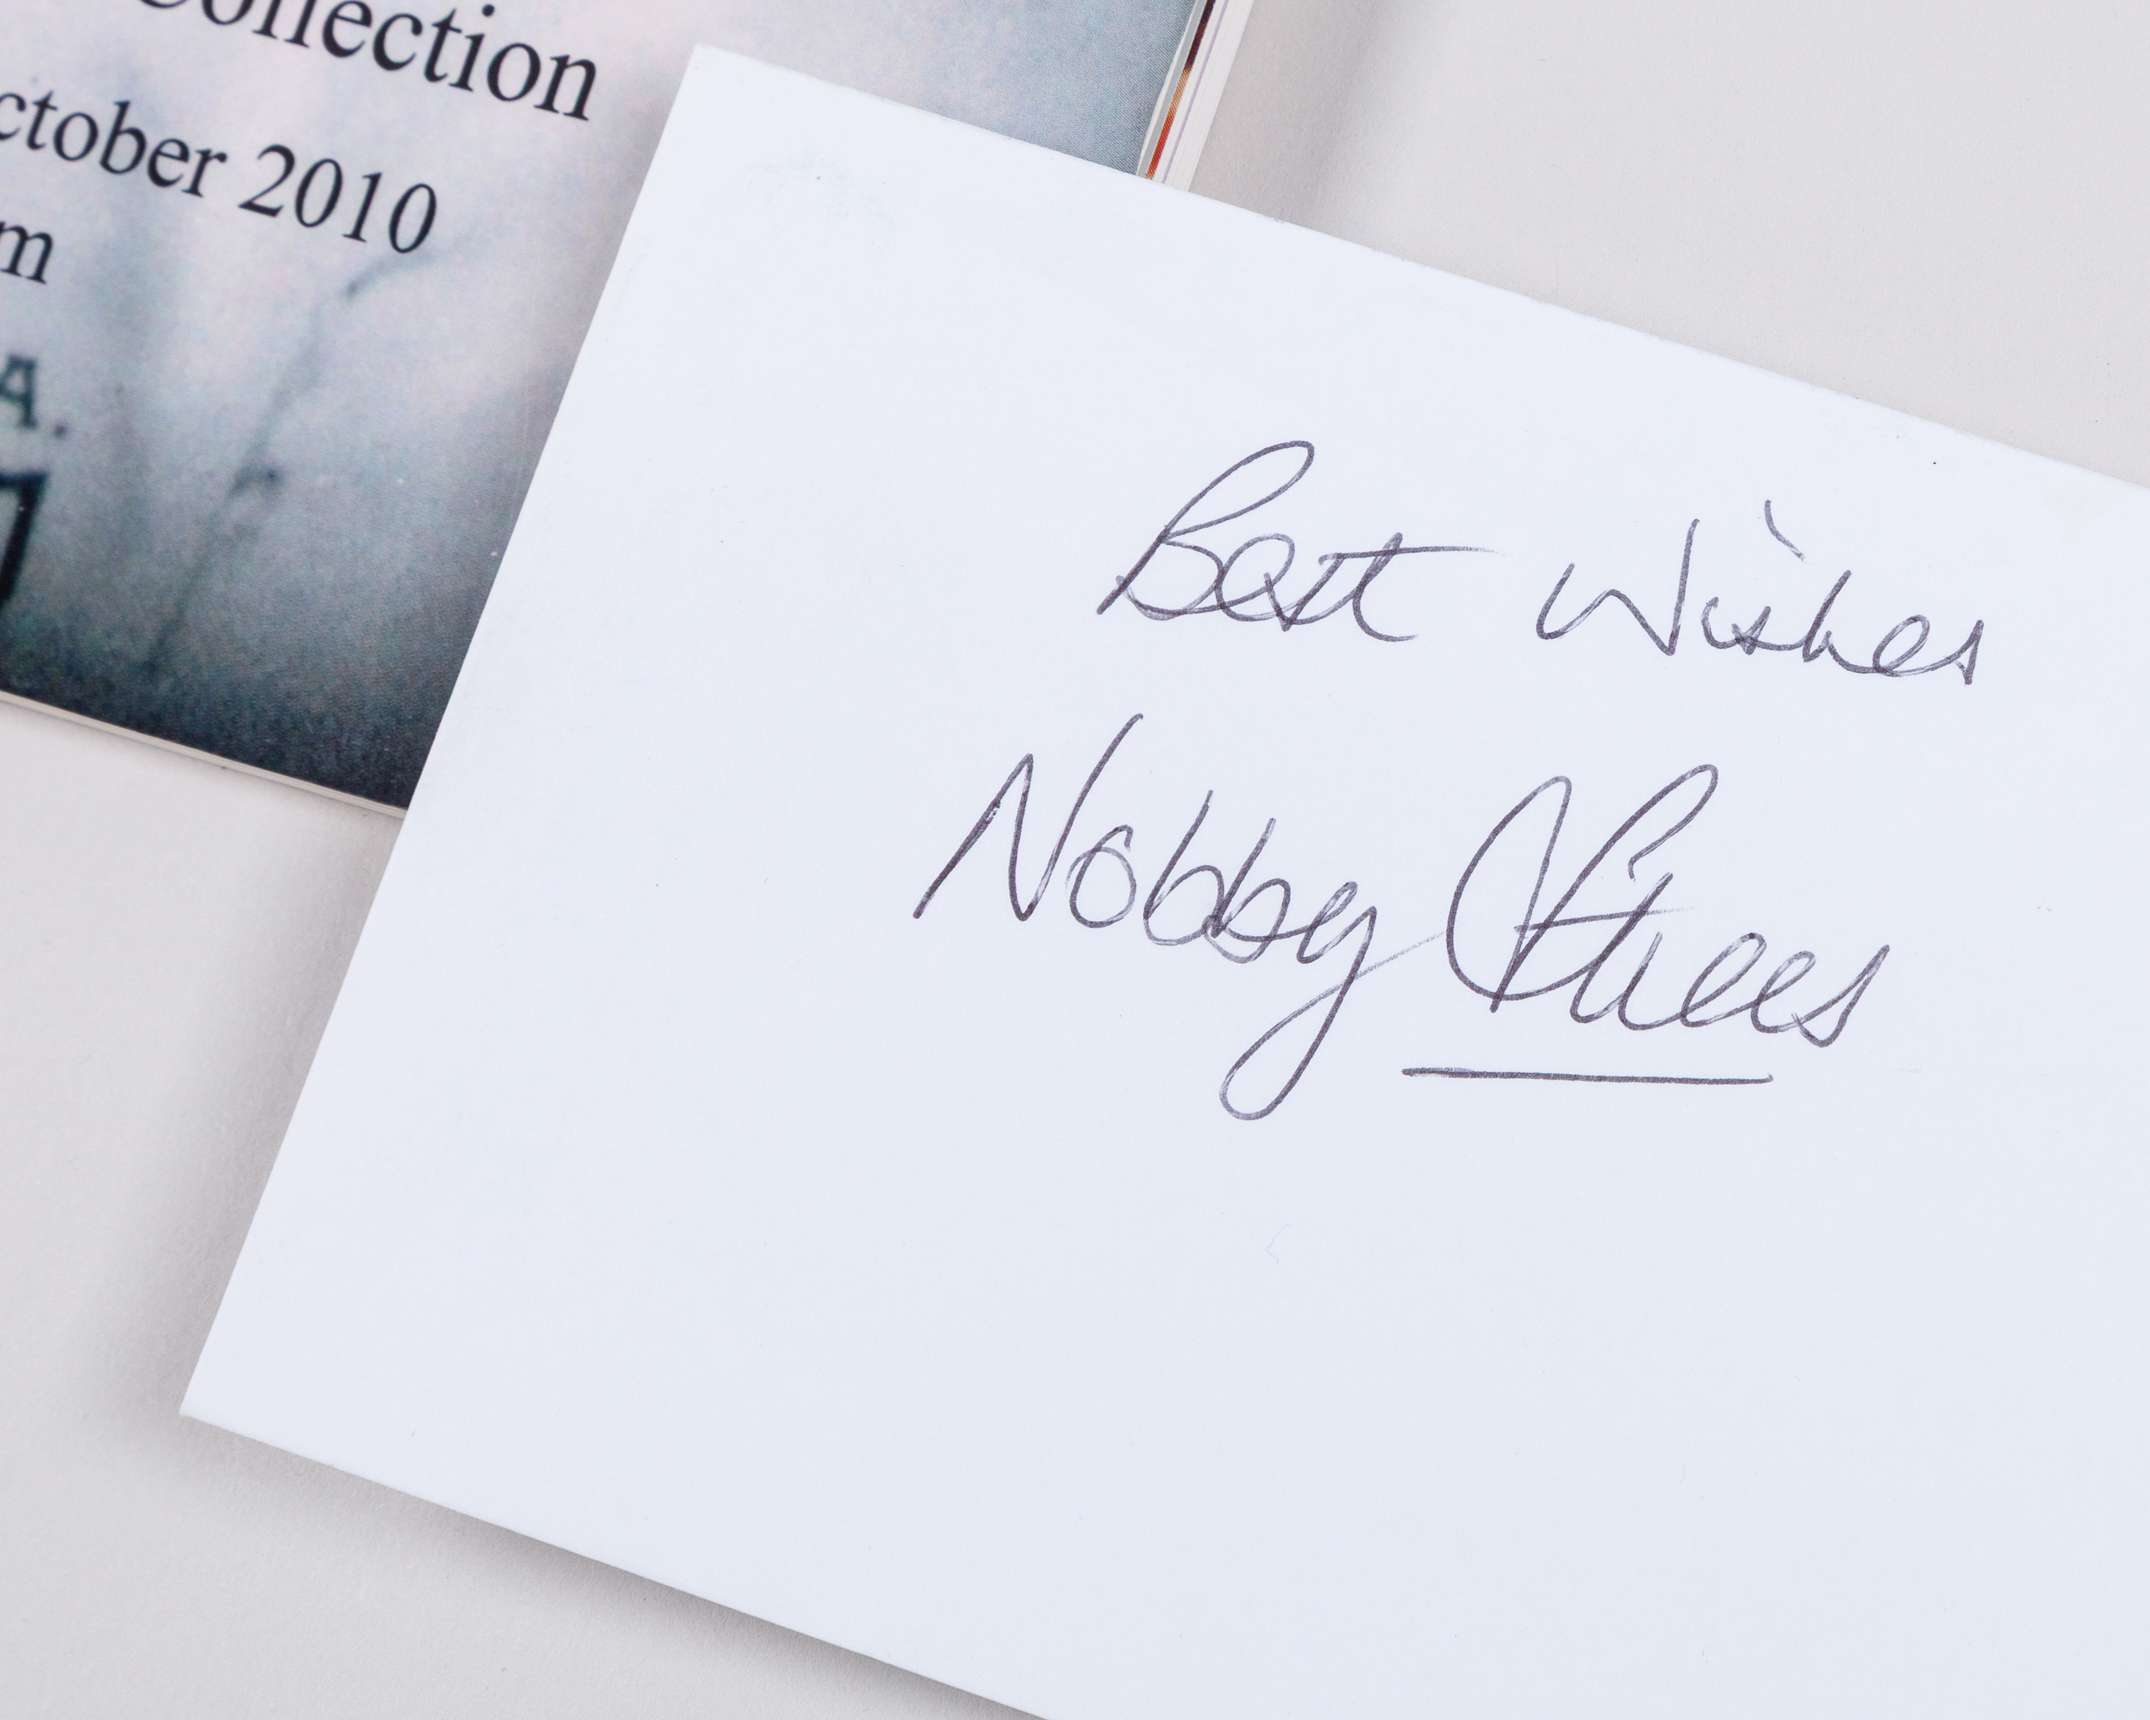 Collection
October 2010
m
A.
Best Wishes
Nobby Stiles